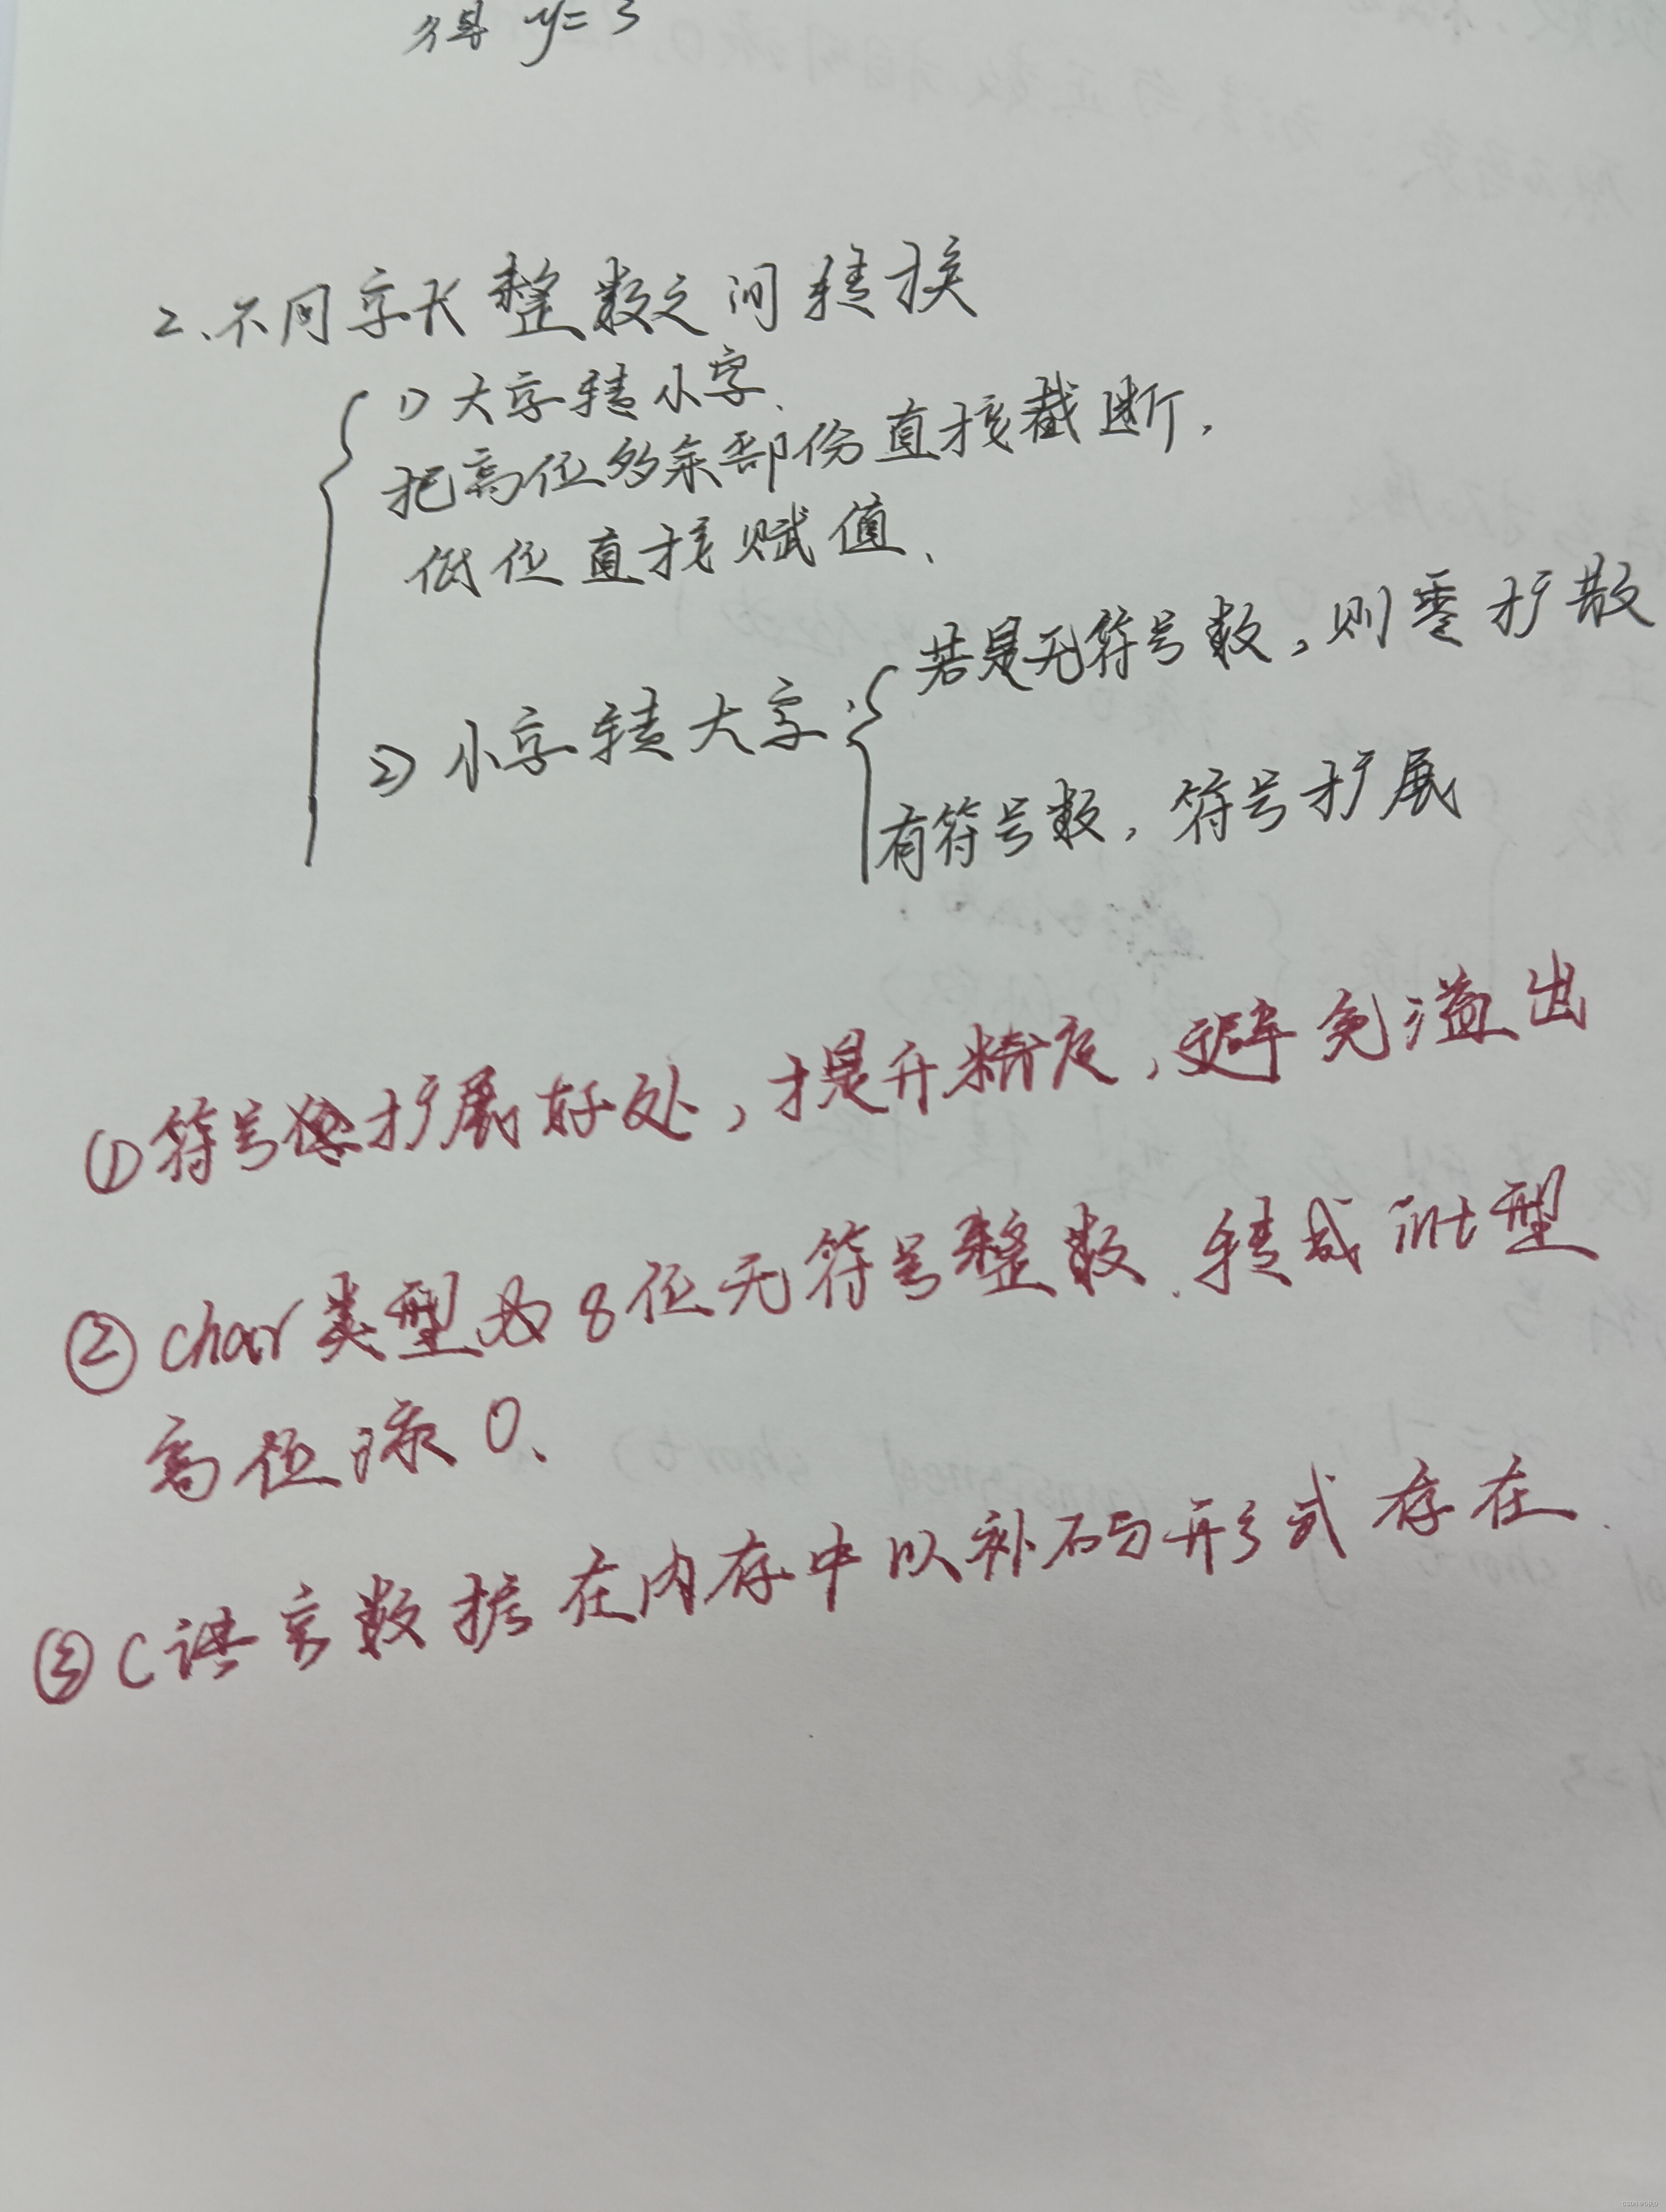 得 y=3
2、不同字长整数之间转换
1) 大字转小字、
把高位多余部份直接截断,
低位直接赋值、
2) 小字转大字:
若是无符号数,则零扩散
有符号数,符号扩展
①符号扩展好处,提升精度,避免溢出
②char类型为8位无符号整数.转成int型
高位添0、
③C语言数据在内存中以补码形式存在.